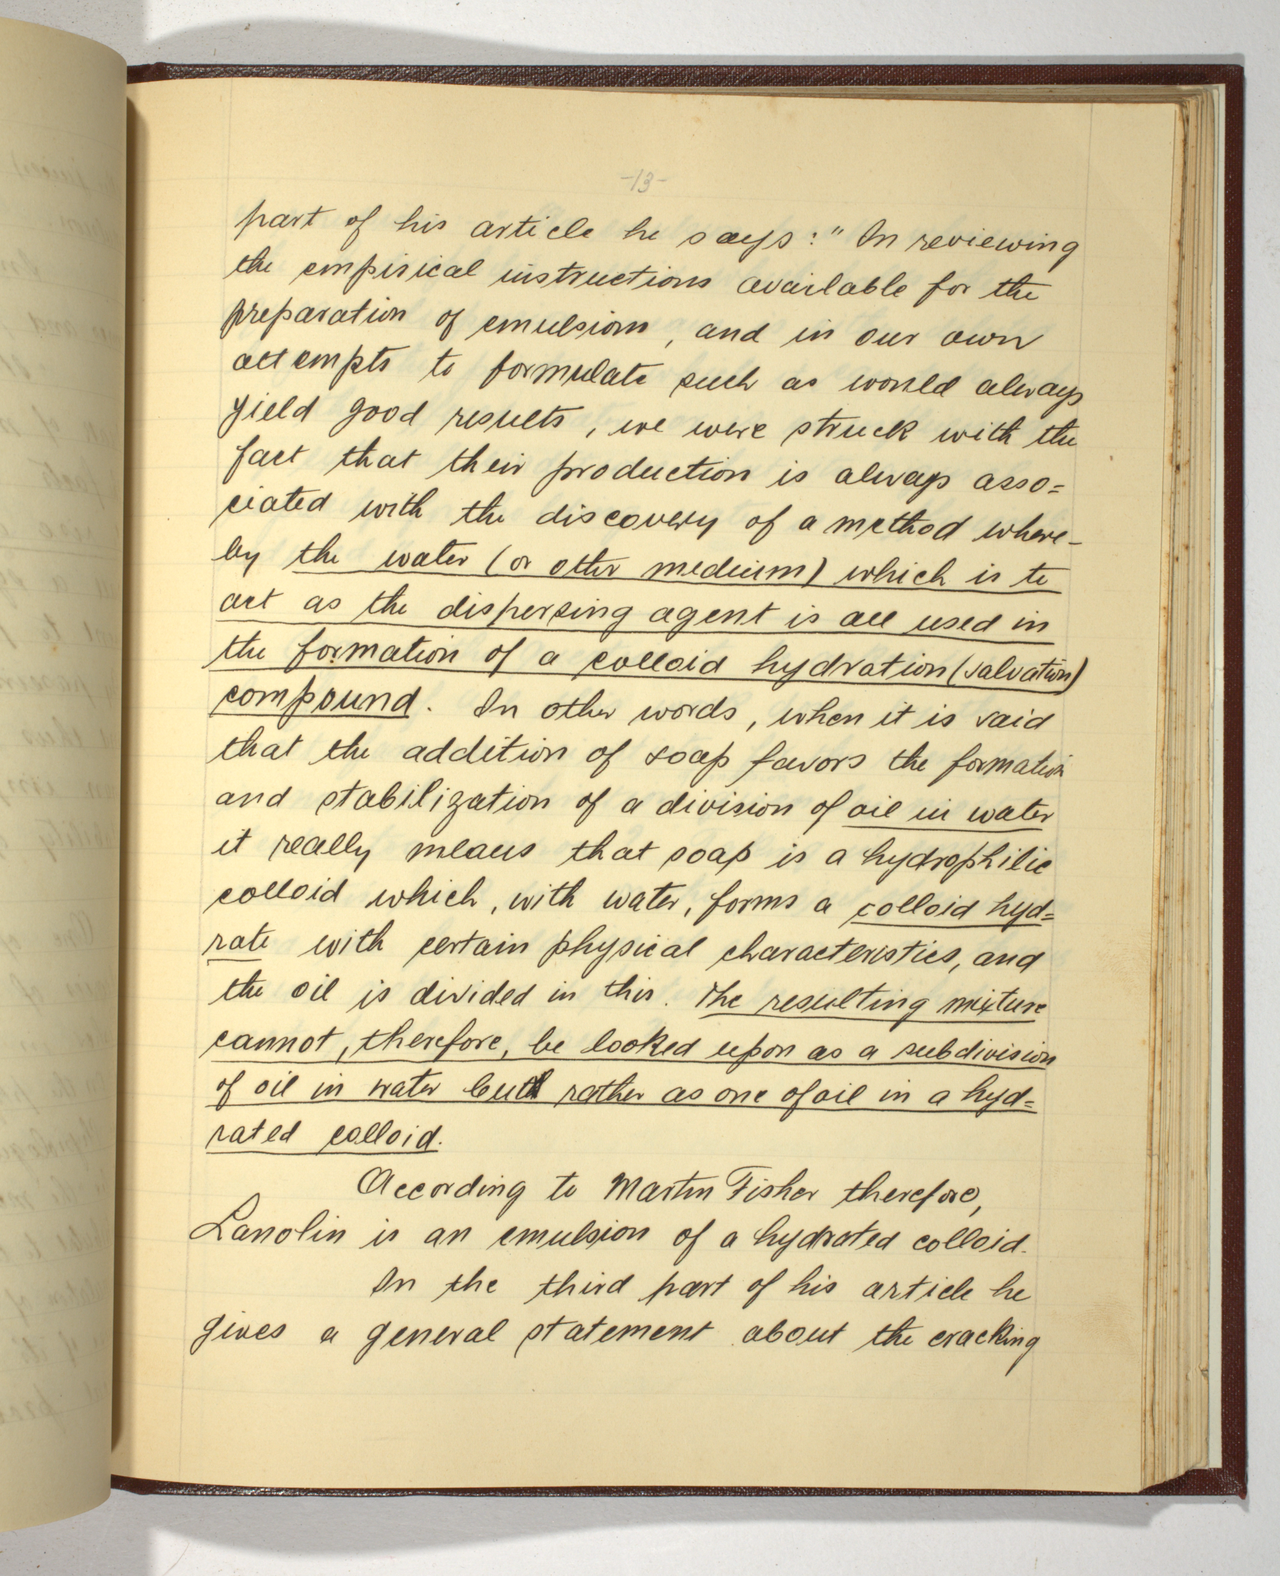 -13-
part of his article he says: " In reviewing
the empirical instructions available for the
preparation of emulsions, and in our own
attempts to formulate such as would always
yield good results, we were struck with the
fact that their production is always asso=
ciated with the discovery of a method where-
by the water (or other medium) which is to
act as the dispersing agent is all used in
the formation of a colloid hydration (salvation)
compound. In other words, when it is said
that the addition of soap favors the formation
and stabilization of a division of oil in water
it really means that soap is a hydrophilic
colloid which, with water, forms a colloid hyd=
rate with certain physical characteristics, and
the oil is divided in this. The resulting mixture
cannot, therefore, be looked upon as a subdivision
of oil in water but rather as one of oil in a hyd=
rated colloid.
According to Martin Fisher therefore,
Lanolin is an emulsion of a hydrated colloid.
In the third part of his article he
gives a general statement about the cracking